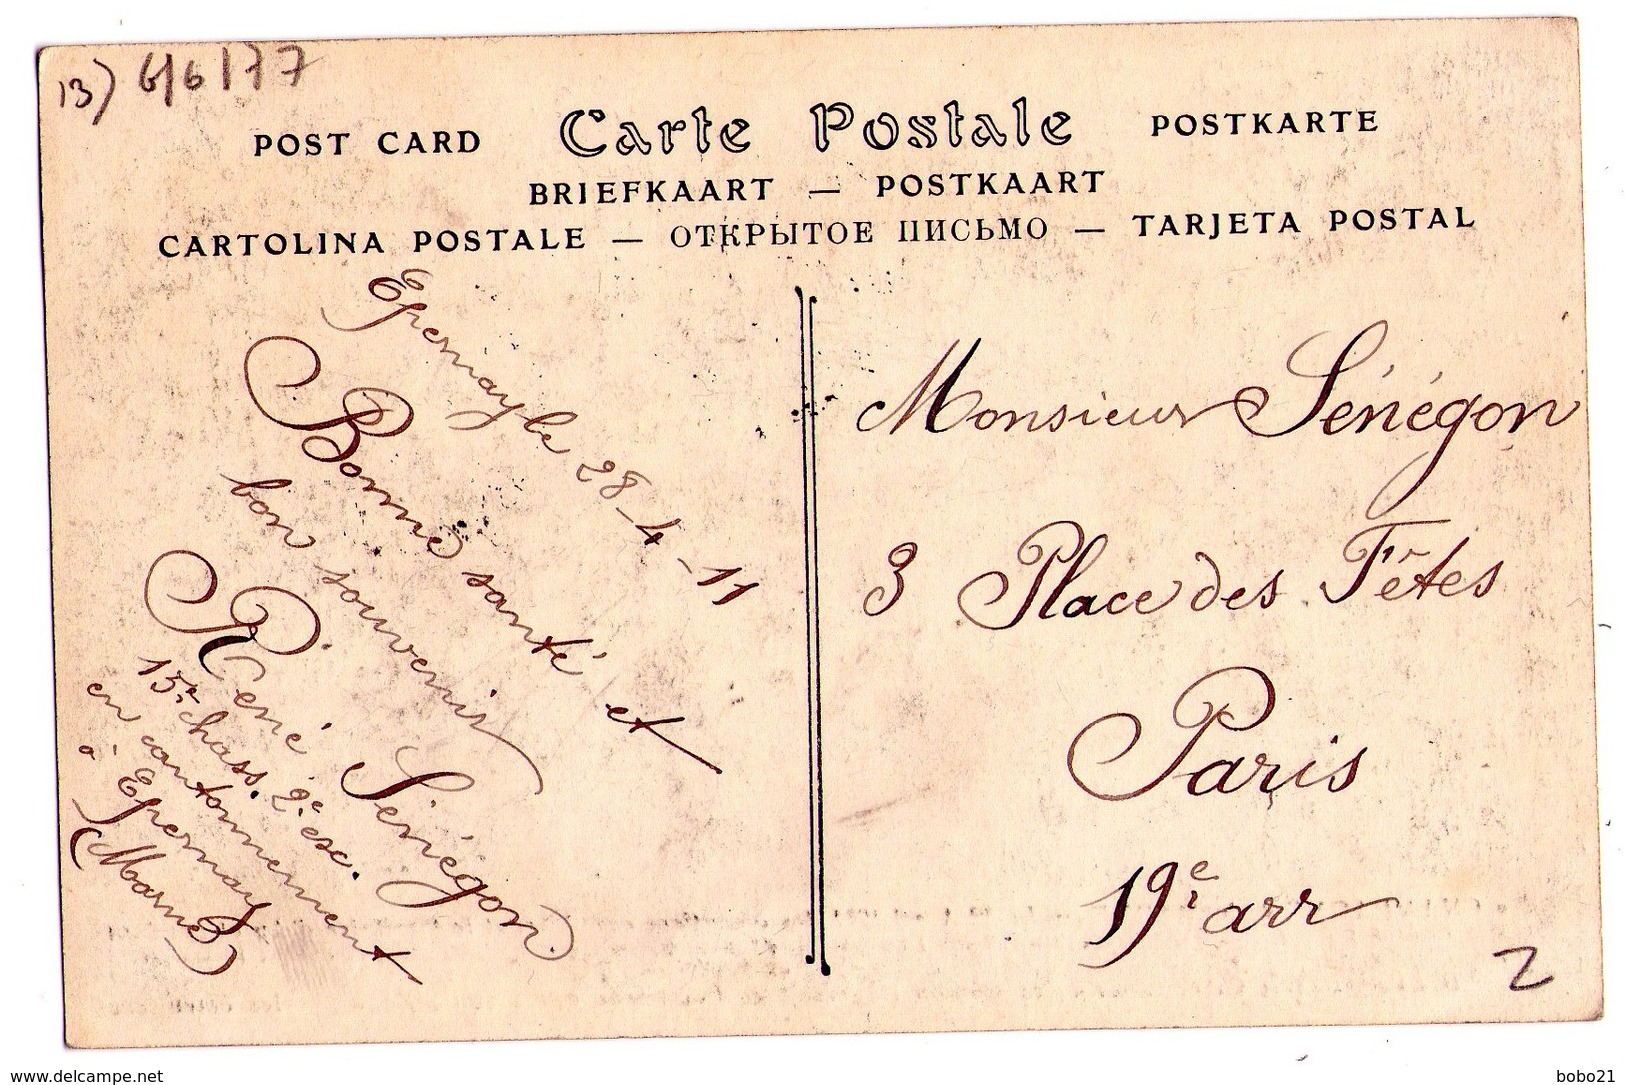 13) 6/6177
POST CARD Carte Postale POSTKARTE
BRIEFKAART — POSTKAART
CARTOLINA POSTALE — ОТКРЫТОЕ ПИСЬМО — TARJETA POSTAL
Epernay le 28-4-11
Bonne santé et
bon souvenir
René Sénégon
15e chass. 2e esc.
en cantonnement
à Epernay
(Marne)
Monsieur Sénégon
3 Place des Fêtes
Paris
19e arr
2
delcampe.net
bobo21